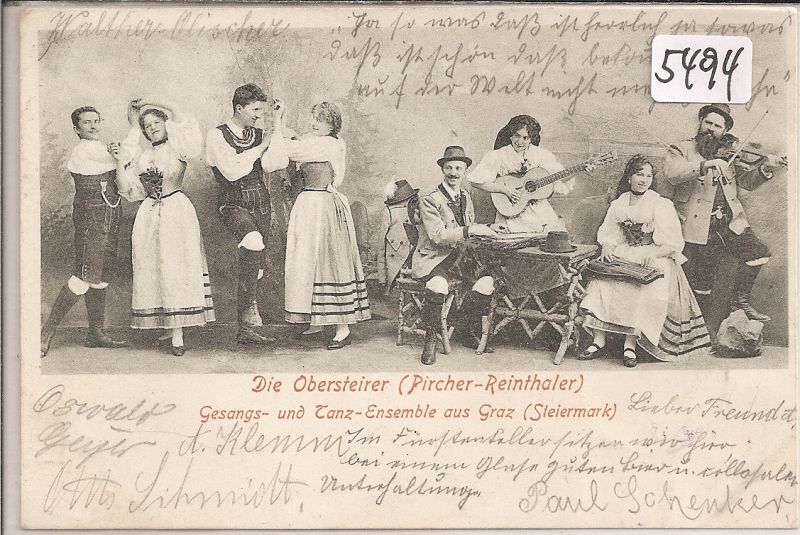 Walther Olischer
„Ja so was daß ist herrlich ja sowas
daß ist schön daß
auf der Welt nicht
5494
Die Obersteirer (Pircher-Reinthaler)
Gesangs- und Tanz-Ensemble aus Graz (Steiermark)
Oswald
Geyer
Lieber Freund!
A. Klemm
Im Fürstenkeller sitzen wir hier
bei einem Glase guten Bier u. collosaler
Unterhaltung.
Otto Schmidt.
Paul Schenker